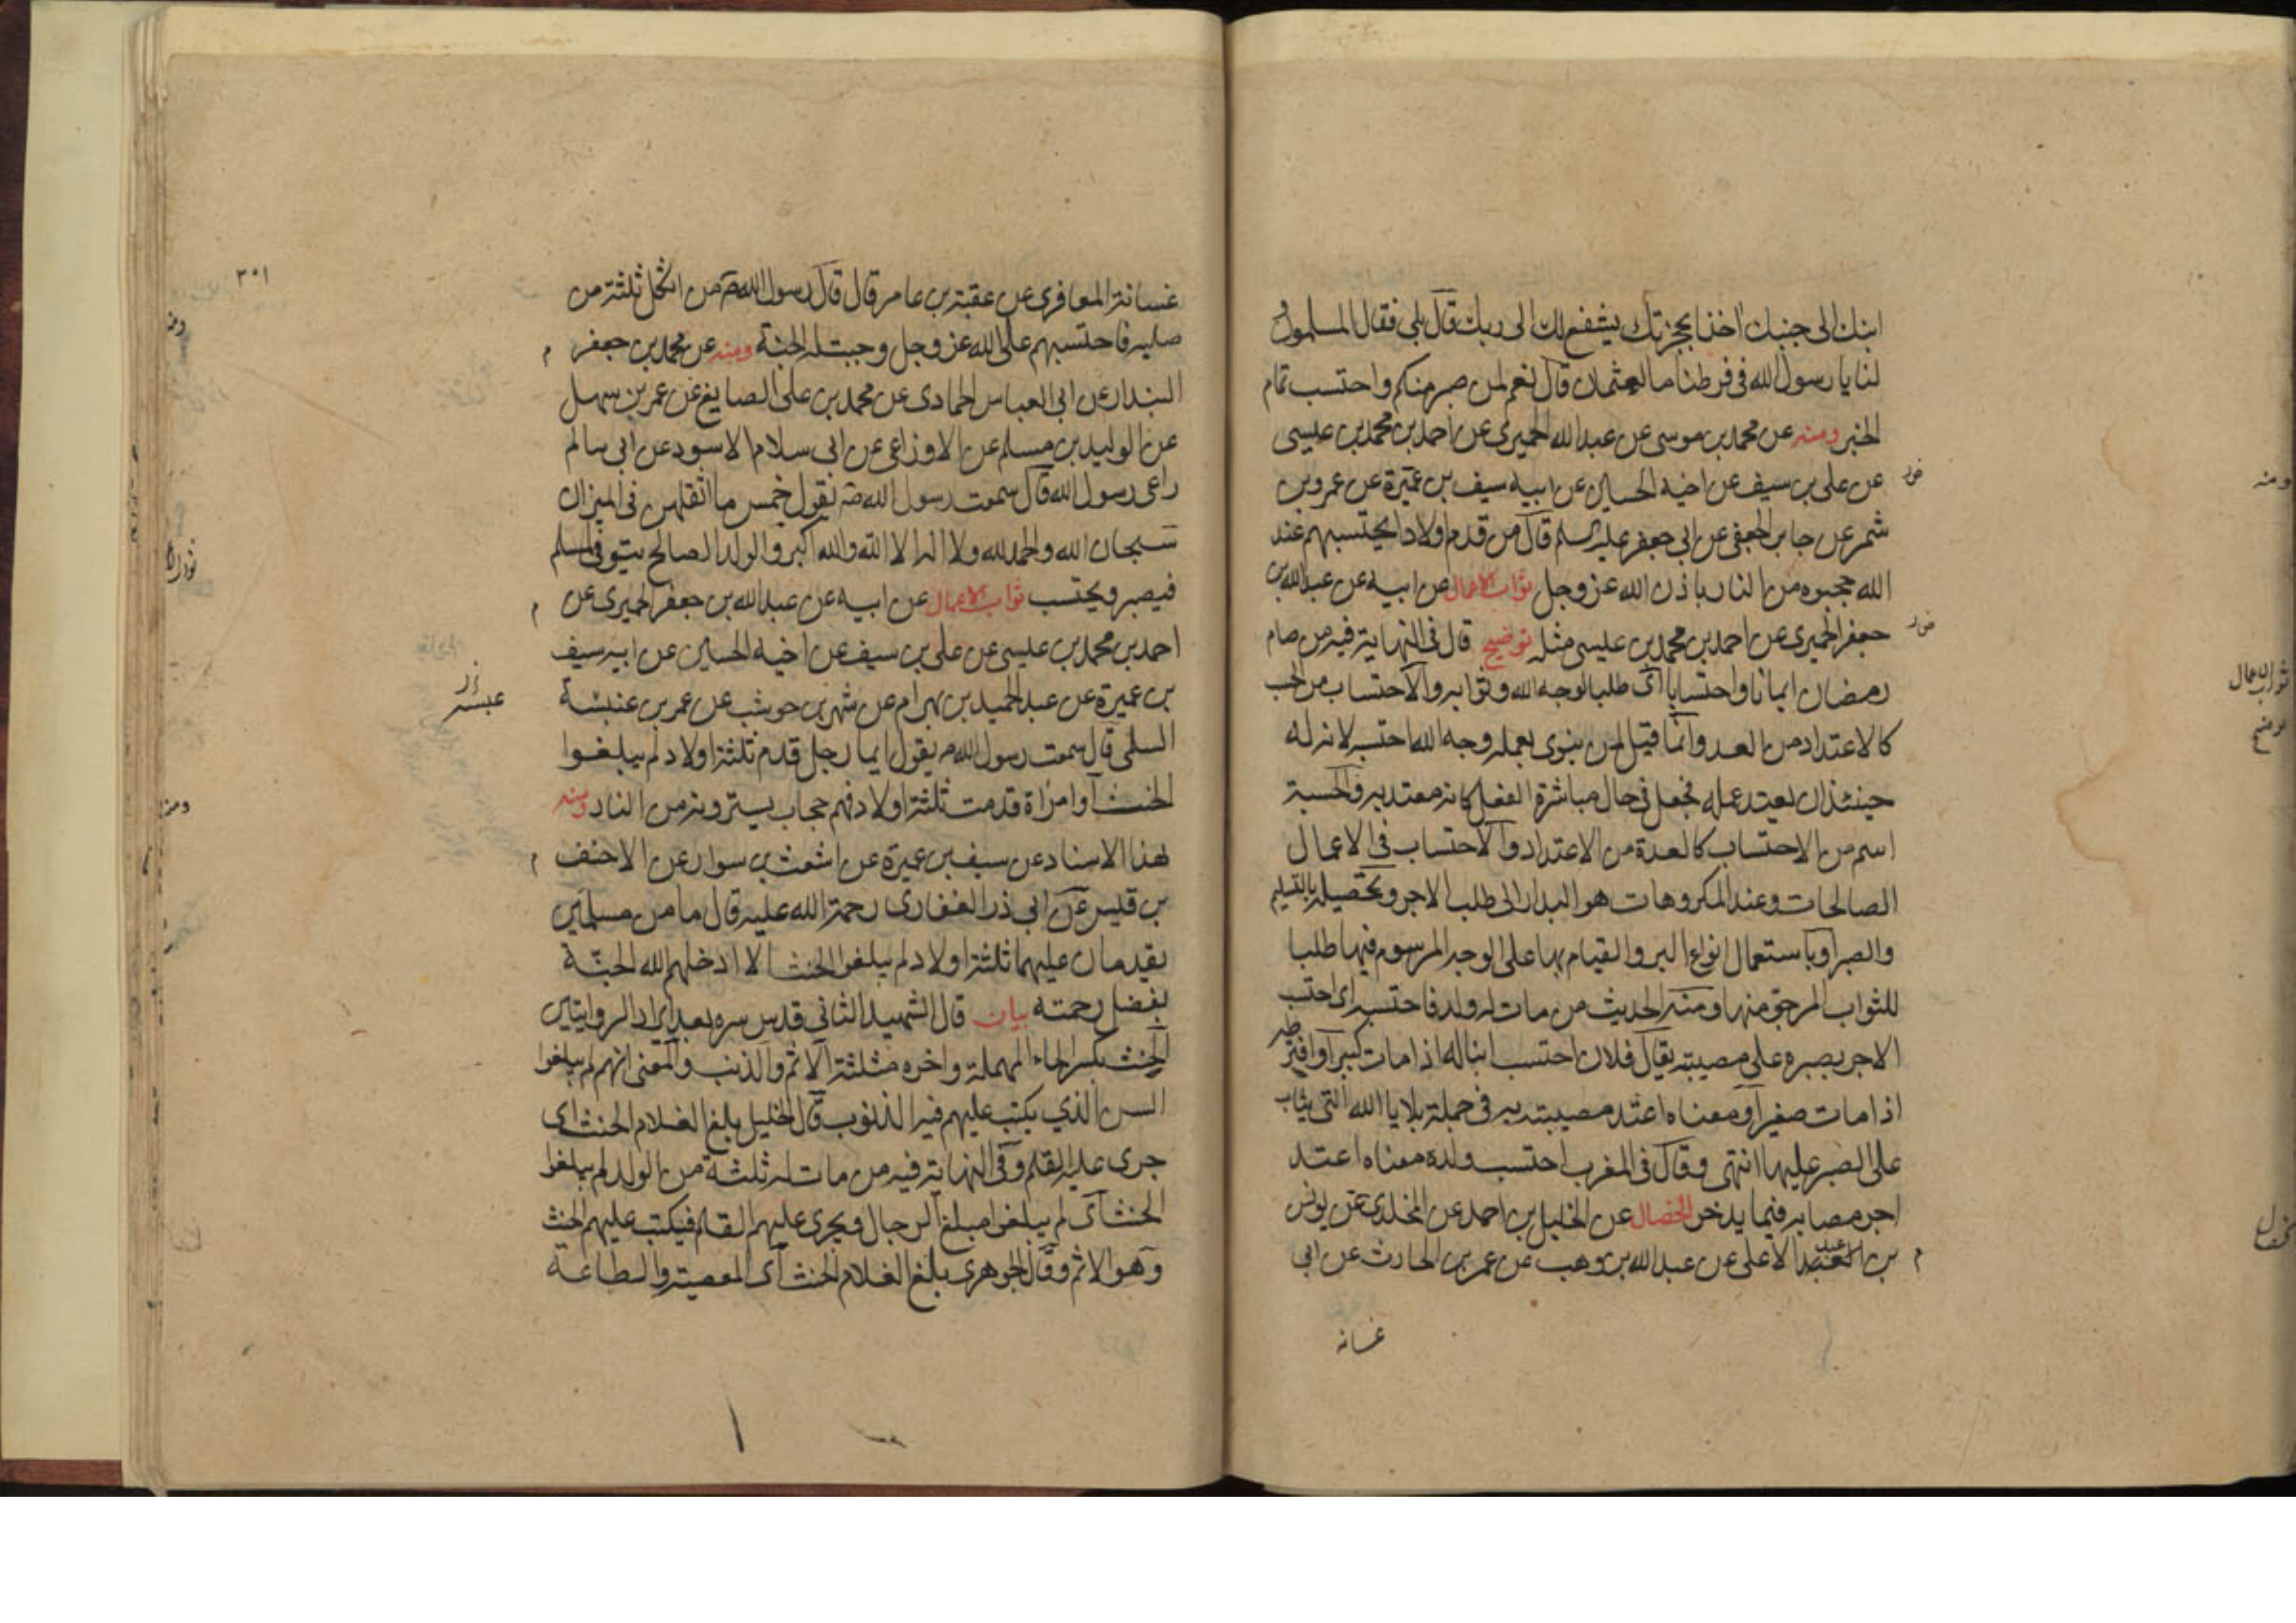 ابنك الى جنبك اخذا بحجزتك يشفع لك الى ربك قال بلى فقال المسلمون
لنا يا رسول الله فى فرطنا ما لعثمان قال نعم لمن صبر منكم واحتسب تمام
الخبر ومنه عن محمد بن موسى عن عبد الله الحميرى عن احمد بن محمد بن عيسى
عن على بن سيف عن اخيه الحسين عن ابيه سيف بن عميرة عن عمرو بن
شمر عن جابر الجعفى عن ابى جعفر عليه السلم قال من قدم اولادا يحتسبهم عند
الله حجبوه من النار باذن الله عز وجل ثواب الاعمال عن ابيه عن عبد الله بن
جعفر الحميرى عن احمد بن محمد بن عيسى مثله توضيح قال فى النهاية فيه من صام
رمضان ايمانا واحتسابا اى طلبا لوجه الله وثوابه والاحتساب من الحسب
كالاعتداد من العد وانما قيل لمن ينوى بعمله وجه الله احتسبه لان له
حينئذ ان يعتد عمله فجعل فى حال مباشرة الفعل كانه معتد به والحسبة
اسم من الاحتساب كالعدة من الاعتداد والاحتساب فى الاعمال
الصالحات وعند المكروهات هو البدار الى طلب الاجر وتحصيله بالتسليم
والصبر او باستعمال انواع البر والقيام بها على الوجه المرسوم فيها طلبا
للثواب المرجو منها ومنه الحديث من مات له ولد فاحتسبه اى احتسب
الاجر بصبره على مصيبته يقال فلان احتسب ابنا له اذا مات كبيرا وافترطه
اذا مات صغيرا ومعناه اعتد مصيبته به فى جملة بلايا الله التى يثاب
على الصبر عليها انتهى وقال فى المغرب احتسب ولده معناه اعتد
اجر مصابه فيما يدخر الخصال عن الخليل بن احمد عن المخلدى عن يونس
بن عبد الاعلى عن عبد الله بن وهب عن عمر بن الحارث عن ابى
غسانه
ومنه
ثواب الاعمال
توضيح
٣٠١
غسانة المعافرى عن عقبة بن عامر قال قال رسول الله ص من اثكل ثلثة من
صلبه فاحتسبهم على الله عز وجل وجبت له الجنة ومنه عن محمد بن جعفر
البندار عن ابى العباس الحمادى عن محمد بن على الصايغ عن عمر بن سهل
عن الوليد بن مسلم عن الاوزاعى عن ابى سلام الاسود عن ابى سالم
راعى رسول الله قال سمعت رسول الله ص يقول خمس ما اثقلهن فى الميزان
سبحان الله والحمد لله ولا اله الا الله والله اكبر والولد الصالح يتوفى لمسلم
فيصبر ويحتسب ثواب الاعمال عن ابيه عن عبد الله بن جعفر الحميرى عن
احمد بن محمد بن عيسى عن على بن سيف عن اخيه الحسين عن ابيه سيف
بن عميرة عن عبد الحميد بن بهرام عن شهر بن حوشب عن عمر بن عنبسة
السلمى قال سمعت رسول الله ص يقول ايما رجل قدم ثلثة اولاد لم يبلغوا
الحنث او امراة قدمت ثلثة اولاد فهم حجاب يسترونه من النار ومنه
بهذا الاسناد عن سيف بن عميرة عن اشعث بن سوار عن الاحنف
بن قيس عن ابى ذر الغفارى رحمة الله عليه قال ما من مسلمين
يقدمان عليهما ثلثة اولاد لم يبلغوا الحنث الا ادخلهم الله الجنة
بفضل رحمته بيان قال الشهيد الثانى قدس سره بعد ايراد الروايتين
الحنث بكسر الحاء المهملة واخره مثلثة الاثم والذنب والمعنى انهم لم يبلغوا
السن الذي يكتب عليهم فيه الذنوب قال الخليل بلغ الغلام الحنث اى
جرى عليه القلم وفى النهاية فيه من مات له ثلثة من الولد لم يبلغوا
الحنث اى لم يبلغوا مبلغ الرجال ويجرى عليهم القلم فيكتب عليهم الحنث
وهو الاثم وقال الجوهرى بلغ الغلام الحنث اى المعصية والطاعة
ومنه
ومنه